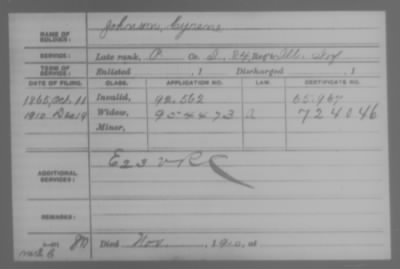 NAME OF SOLDIER: Johnson, Cyrene
SERVICE: Late rank, P Co. D, 84 Reg't Ill. Inf
TERM OF SERVICE: Enlisted , 1 Discharged , 1
DATE OF FILING. CLASS. APPLICATION NO. LAW. CERTIFICATE NO.
1865, Oct. 11 Invalid, 92.562 65.967
1910 Dec 19 Widow, 954473 a 724046
Minor,
ADDITIONAL SERVICES: E 23 VRC
REMARKS:
Died Nov , 1910, at